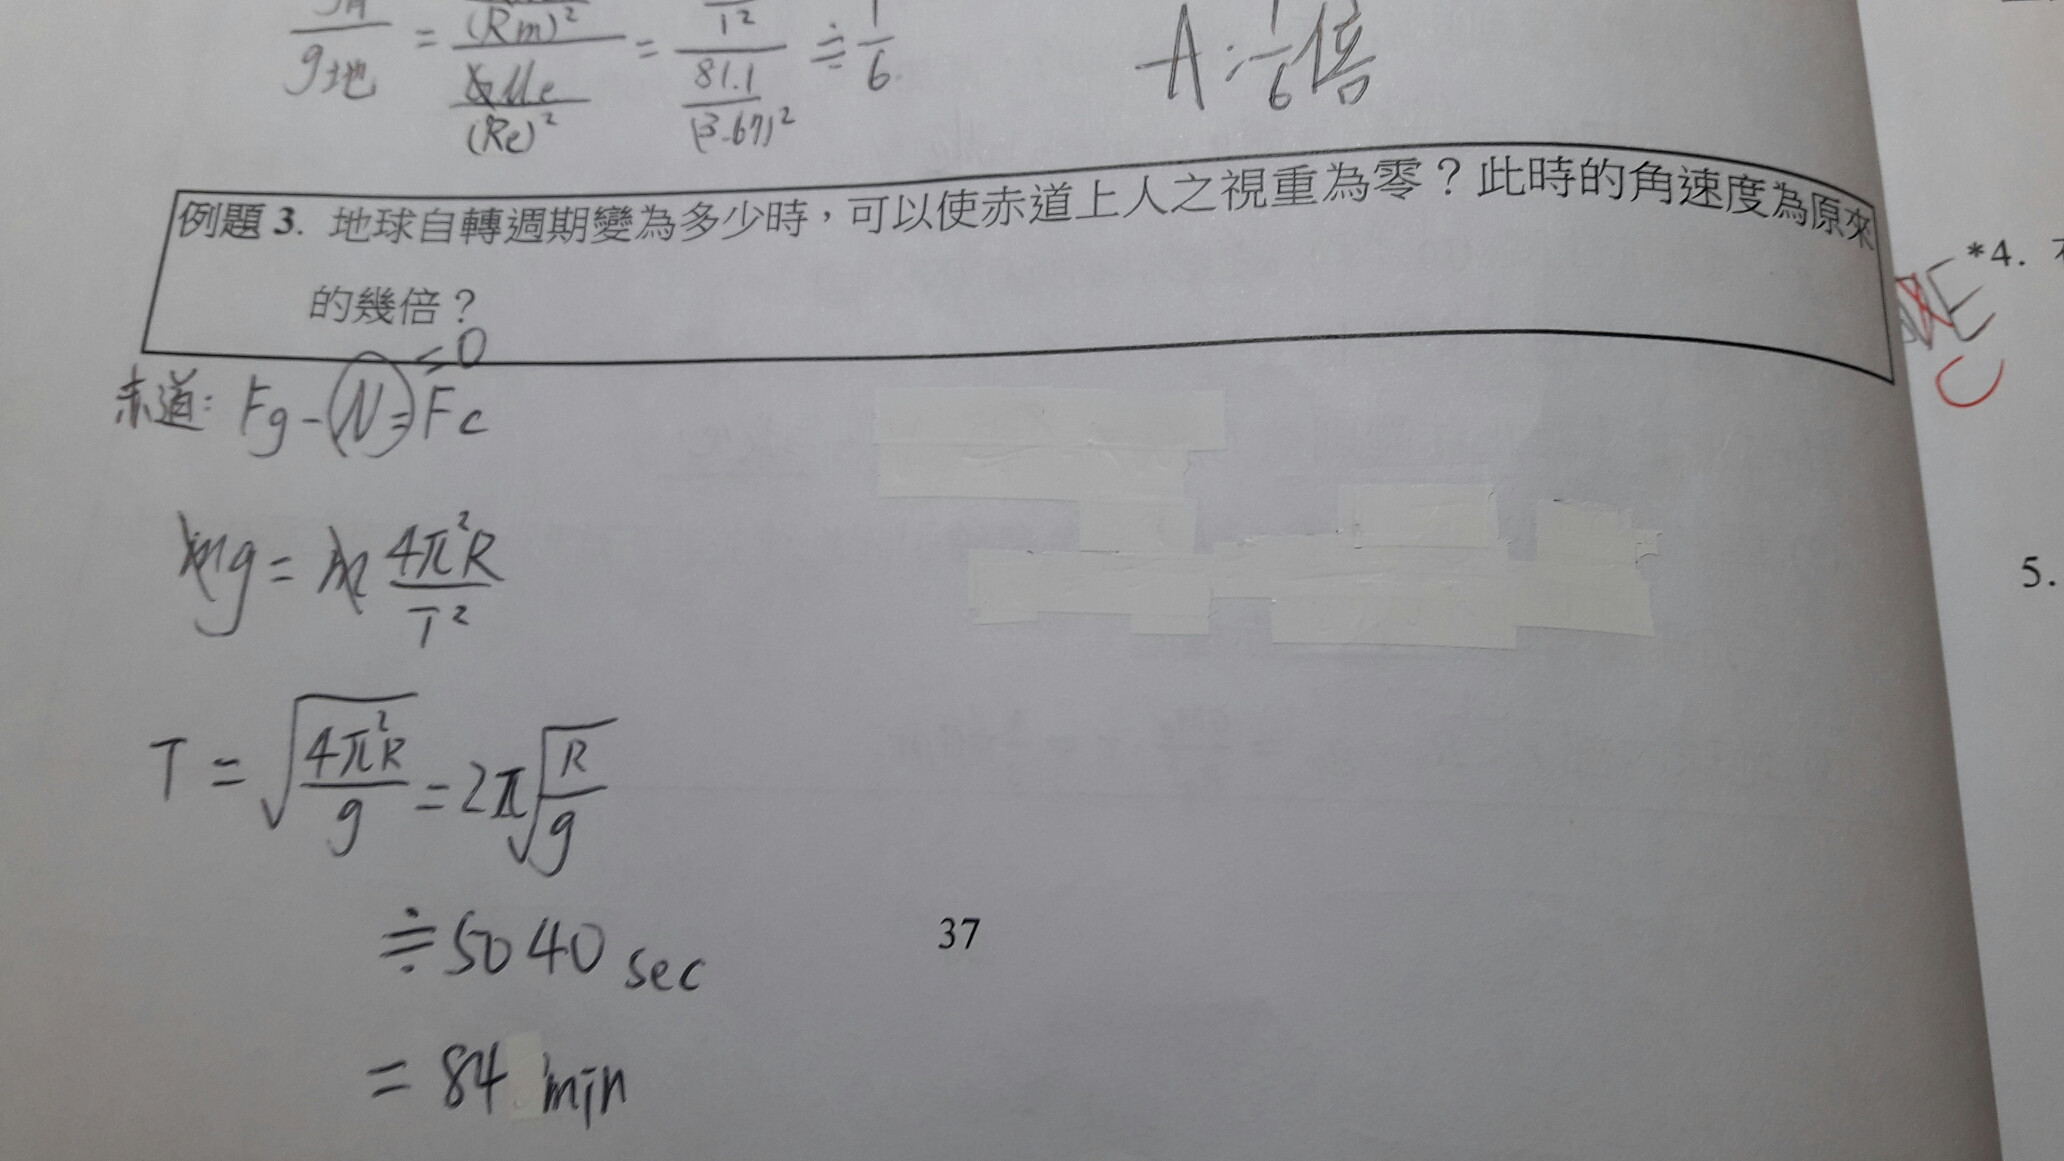 g地 = (Rm)² = 1² ≒ 1/6
GMe/(Re)² 81.1/(3.67)²
A: 1/6倍
例題 3. 地球自轉週期變為多少時，可以使赤道上人之視重為零？此時的角速度為原來
的幾倍？
*4.
E
C
赤道: Fg - N = Fc
= 0
mg = m 4π²R/T²
5.
T = √(4π²R/g) = 2π√(R/g)
≒ 5040 sec
37
= 84 min